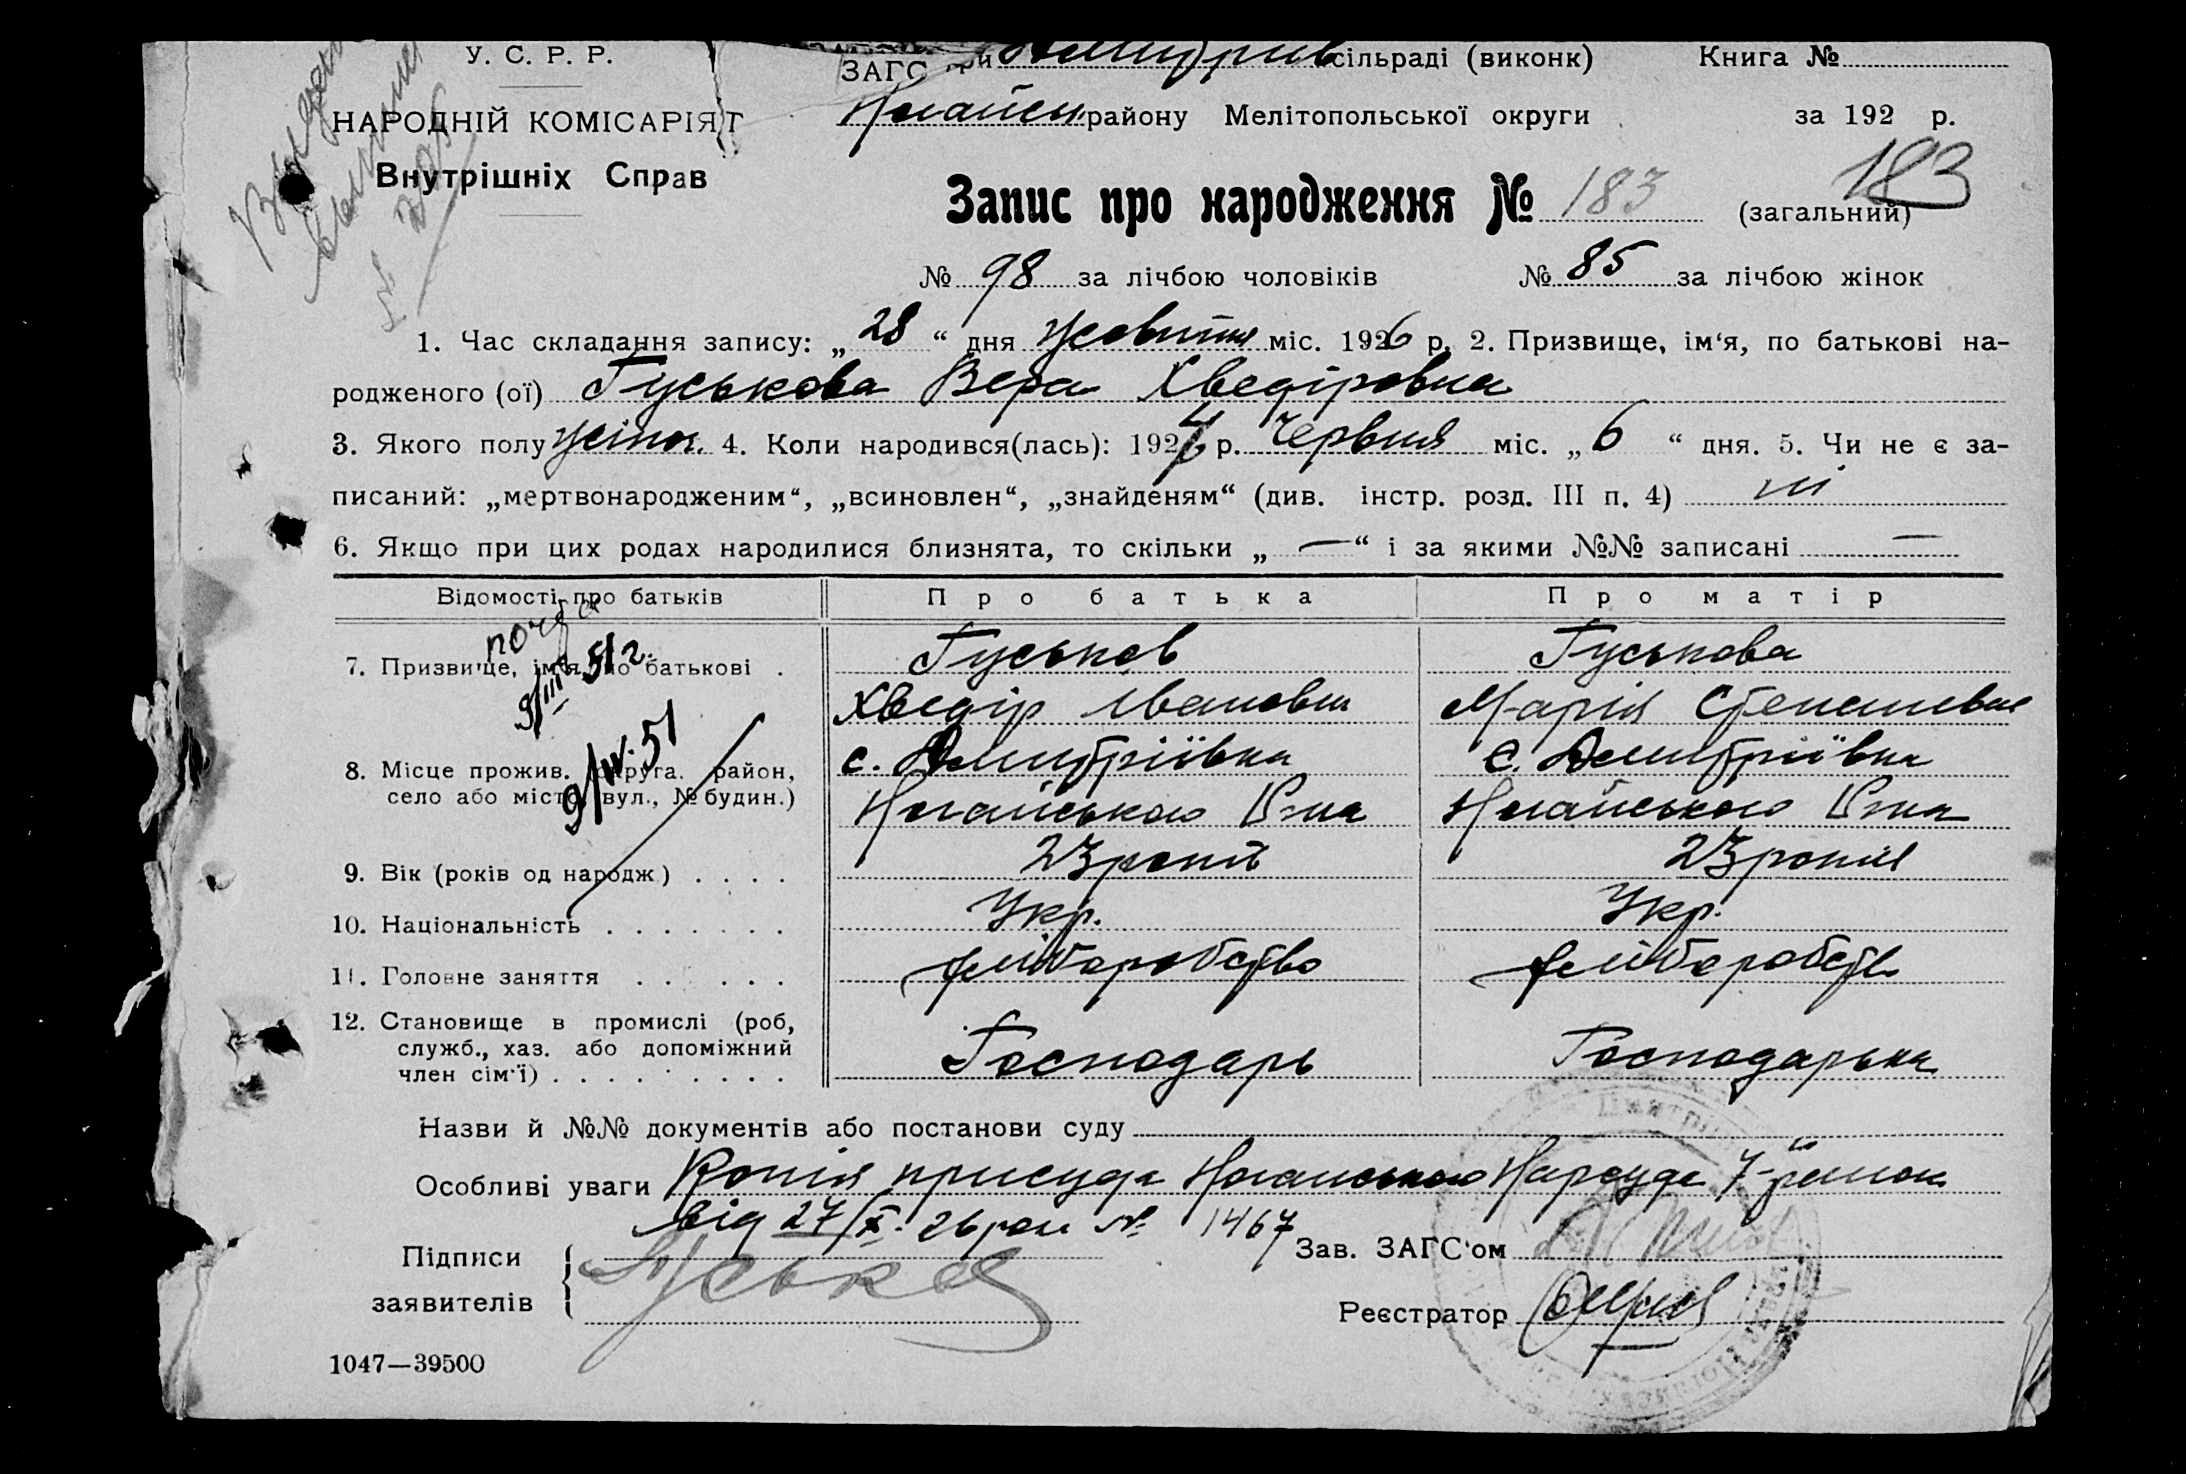 У. С. Р. Р.
НАРОДНІЙ КОМІСАРІЯТ
Внутрішніх Справ
ЗАГС при сільраді (виконк) Книга №
району Мелітопольської округи за 192 р.
183
Запис про народження № 183 (загальний)
№ 98 за лічбою чоловіків № 85 за лічбою жінок
1. Час складання запису: „ 28 “ дня Жовтня міс. 1926 р. 2. Призвище, ім‘я, по батькові на-
родженого (ої) Гуськова Вера Хведіровна
3. Якого полу жіноч. 4. Коли народився(лась): 192 р. Червня міс. „ 6 “ дня. 5. Чи не є за-
писаний: „мертвонародженим“, „всиновлен“, „знайденям“ (див. інстр. розд. III п. 4) ні
6. Якщо при цих родах народилися близнята, то скільки „ — “ і за якими №№ записані —
Відомості про батьків Про батька Про матір
7. Призвище, ім‘я, по батькові . Гуськов Гуськова
Хведір Іванович Марія Степановна
9/III 51 г.
9/IV.51
8. Місце прожив. округа, район, с. Дмитріївка с. Дмитріївка
село або місто, вул., № будин.) Ногайського Р-на Ногайського Р-на
9. Вік (років од народж) . . . . 23 років 23 років
10. Національність . . . . . . . Укр. Укр.
11. Головне заняття . . . . . . хліборобство хліборобств
12. Становище в промислі (роб,
служб., хаз. або допоміжний Господарь Господарька
член сім‘ї) . . . . . . . . .
Назви й №№ документів або постанови суду
Особливі уваги Копія присуда Ногайського Нарсуда 7-й
від 27/X 26 рок № 1467
Підписи
заявителів Гуськов
Зав. ЗАГС‘ом
Реєстратор
1047—39500